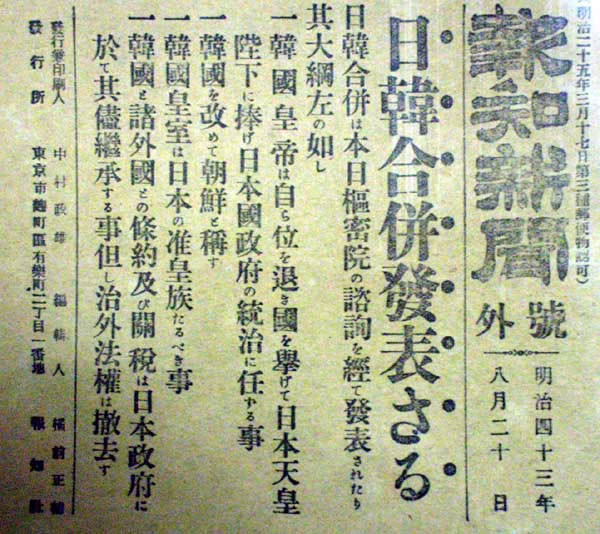 明治二十五年三月十七日第三種郵便物認可)
報知新聞
號外
明治四十三年
八月二十日
日韓合併發表さる
日韓合併は本日樞密院の諮詢を經て發表されたり
其大綱左の如し
一韓國皇帝は自ら位を退き國を擧げて日本天皇
陛下に捧げ日本國政府の統治に任ずる事
一韓國を改めて朝鮮と稱す
一韓國皇室は日本の准皇族たるべき事
一韓國と諸外國との條約及び關税は日本政府に
於て其儘繼承する事但し治外法權は撤去す
發行兼印刷人 中村政雄 編輯人
發行所 東京市麹町區有樂町二丁目一番地 報知社